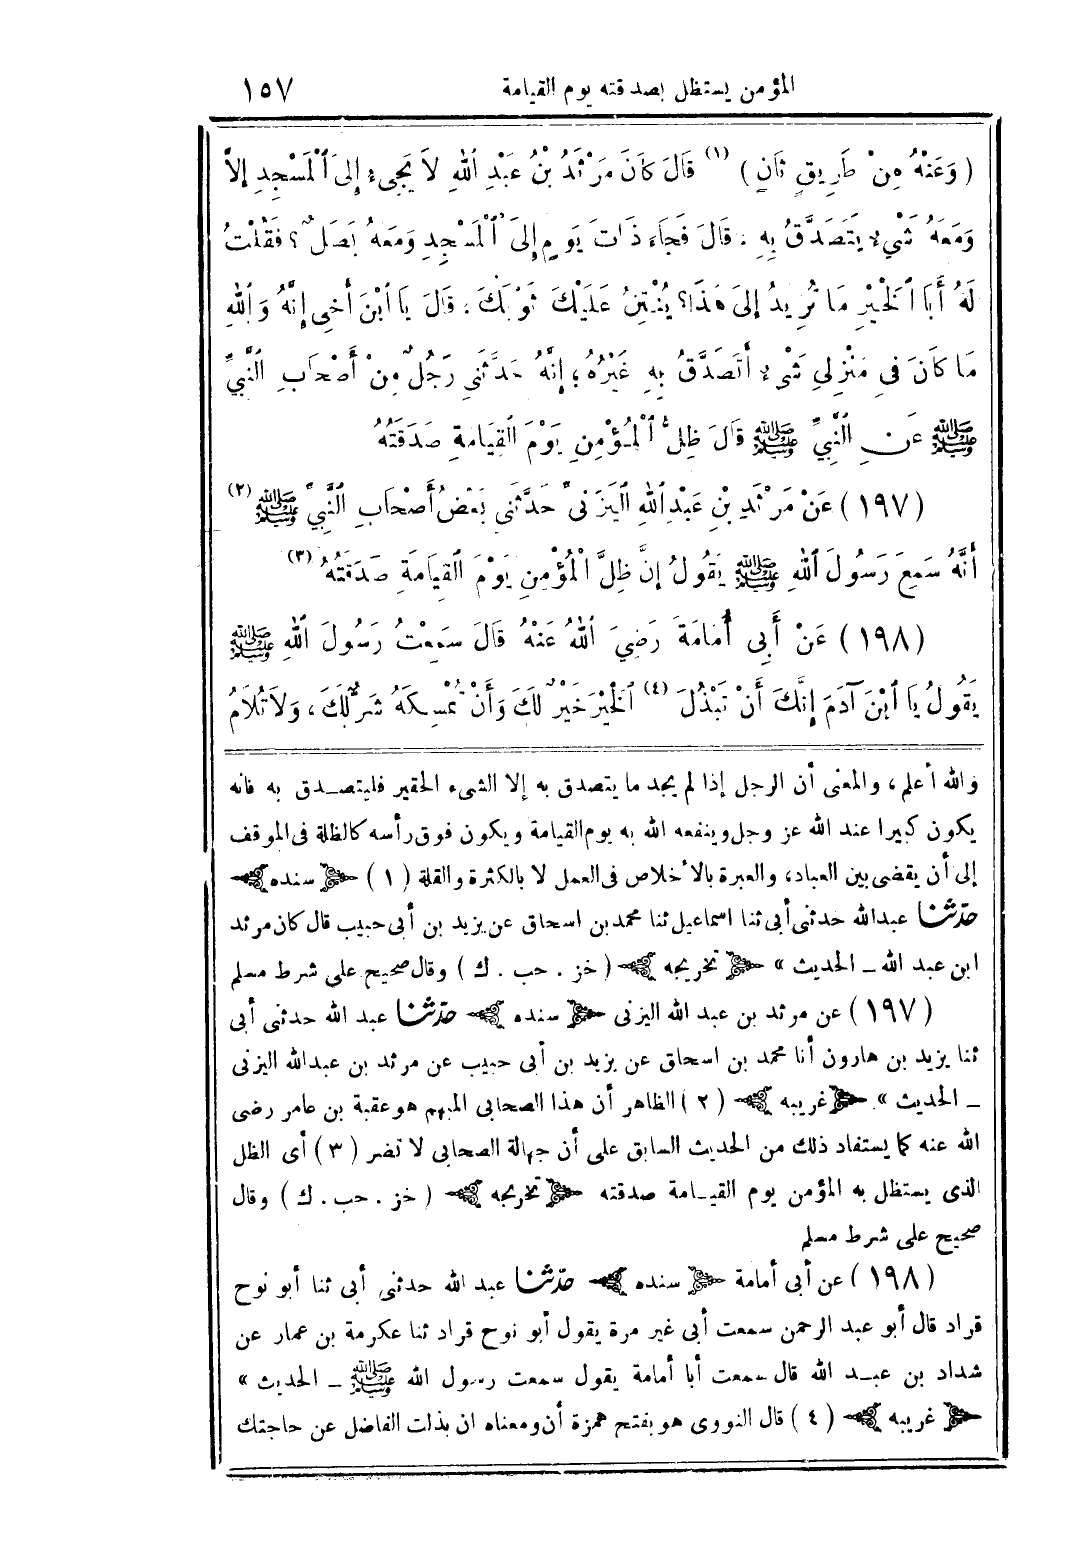 المؤمن يستظل بصدقته يوم القيامة ١٥٧
( وَعَنْهُ مِنْ طَرِيقٍ ثَانٍ ) (١) قَالَ كَانَ مَرْثَدُ بْنُ عَبْدِ اللهِ لاَ يَجِىءُ إِلَى الْمَسْجِدِ إِلاَّ
وَمَعَهُ شَىْءٌ يَتَصَدَّقُ بِهِ ، قَالَ فَجَاءَ ذَاتَ يَوْمٍ إِلَى الْمَسْجِدِ وَمَعَهُ بَصَلٌ ؟ فَقُلْتُ
لَهُ أَبَا الْخَيْرِ مَا تُرِيدُ إِلَى هَذَا؟ يُنْتِنُ عَلَيْكَ ثَوْبَكَ ، قَالَ يَا ابْنَ أَخِى إِنَّهُ وَاللهِ
مَا كَانَ فِى مَنْزِلِى شَىْءٌ أَتَصَدَّقُ بِهِ غَيْرُهُ ؛ إِنَّهُ حَدَّثَنِى رَجُلٌ مِنْ أَصْحَابِ النَّبِىِّ
ﷺ عَنِ النَّبِىِّ ﷺ قَالَ ظِلُّ الْمُؤْمِنِ يَوْمَ الْقِيَامَةِ صَدَقَتُهُ
(١٩٧) عَنْ مَرْثَدِ بْنِ عَبْدِ اللهِ الْيَزَنِىِّ حَدَّثَنِى بَعْضُ أَصْحَابِ النَّبِىِّ ﷺ (٢)
أَنَّهُ سَمِعَ رَسُولَ اللهِ ﷺ يَقُولُ إِنَّ ظِلَّ الْمُؤْمِنِ يَوْمَ الْقِيَامَةِ صَدَقَتُهُ (٣)
(١٩٨) عَنْ أَبِى أُمَامَةَ رَضِيَ اللهُ عَنْهُ قَالَ سَمِعْتُ رَسُولَ اللهِ ﷺ
يَقُولُ يَا ابْنَ آدَمَ إِنَّكَ أَنْ تَبْذُلَ (٤) الْخَيْرَ خَيْرٌ لَكَ وَأَنْ تُمْسِكَهُ شَرٌّ لَكَ ، وَلاَ تُلاَمُ
والله أعلم ، والمعنى أن الرجل إذا لم يجد ما يتصدق به إلا الشىء الحقير فليتصدق به فانه
يكون كبيرا عند الله عز وجل وينفعه الله به يوم القيامة ويكون فوق رأسه كالظلة فى الموقف
إلى أن يقضى بين العباد، والعبرة بالاخلاص فى العمل لا بالكثرة والقلة (١) سنده
حدّثنا عبدالله حدثنى أبى ثنا اسماعيل ثنا محمد بن اسحاق عن يزيد بن أبى حبيب قال كان مرثد
ابن عبد الله ــ الحديث » تخريجه (خز . حب . ك) وقال صحيح على شرط مسلم
(١٩٧) عن مرثد بن عبد الله اليزنى سنده حدّثنا عبد الله حدثنى أبى
ثنا يزيد بن هارون أنا محمد بن اسحاق عن يزيد بن أبى حبيب عن مرثد بن عبدالله اليزنى
ــ الحديث » غريبه (٢) الظاهر أن هذا الصحابى المبهم هو عقبة بن عامر رضى
الله عنه كما يستفاد ذلك من الحديث السابق على أن جهالة الصحابى لا تضر (٣) أى الظل
الذى يستظل به المؤمن يوم القيامة صدقته تخريجه (خز . حب . ك) وقال
صحيح على شرط مسلم
(١٩٨) عن أبى أمامة سنده حدّثنا عبد الله حدثنى أبى ثنا أبو نوح
قراد قال أبو عبد الرحمن سمعت أبى غير مرة يقول أبو نوح قراد ثنا عكرمة بن عمار عن
شداد بن عبد الله قال سمعت أبا أمامة يقول سمعت رسول الله ﷺ ــ الحديث »
غريبه (٤) قال النووى هو بفتح همزة أن ومعناه ان بذلت الفاضل عن حاجتك